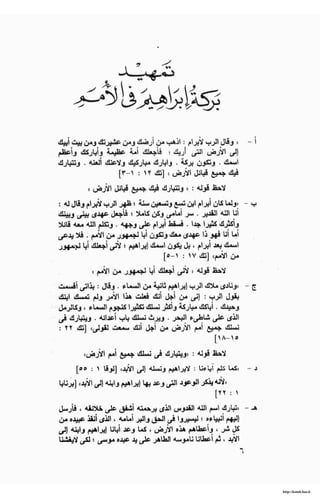 تمهيد
بركة إبراهيم في الأمم
أ - « وقال الرب لأبرام : اذهب من أرضك ومن عشيرتك ومن بيت أبيك
إلى الأرض التى أريك ؛ فأجعلك أمة عظيمة وأباركك وأعظم
اسمك . وتكون بركة . وأبارك مباركيك ولاعنك ألعنه . وتتبارك
فيك جميع قبائل الأرض » [تك ١٢ : ١-٣]
لاحظ قوله : « وتتبارك فيك جميع قبائل الأرض »
ب - «ولما كان أبرام ابن تسع وتسعين سنة ؛ ظهر الرب لأبرام وقال له :
أنا الله القدير . سر أمامى وكن كاملا ؛ فأجعل عهدى بينى وبينك
وأكثرك كثيرا جدا . فسقط أبرام على وجهه . وتكلم الله معه قائلا
أما أنا فهو ذا عهدى معك وتكون أبا لجمهور من الأمم . فلا يدعى
اسمك بعد أبرام ، بل يكون اسمك إبراهيم ؛ لأنى أجعلك أبا لجمهور
من الأمم» [تك ١٧ : ١-٥]
لاحظ قوله : « لأنى أجعلك أبا لجمهور من الأمم »
ج - «ونادى ملاك الرب إبراهيم ثانية من السماء . وقال : بذاتى أقسمت
يقول الرب : إنى من أجل أنك فعلت هذا الأمر ولم تمسك ابنك
وحيدك . أباركك مباركة وأكثر نسلك تكثيرا كنجوم السماء ، وكالرمل
الذى على شاطىء البحر . ويرث نسلك باب أعدائه . ويتبارك فى
نسلك جميع أمم الأرض من أجل أنك سمعت لقولى» [تك ٢٢ :
١٥-١٨]
لاحظ قوله : «ويتبارك فى نسلك جميع أمم الأرض»
د - «كما كلم آباءنا : لإبراهيم ونسله إلى الأبد» [لوقا ١ : ٥٥]
«لأنه يذكر الوعود التى وعد بها إبراهيم وابنه إلى الأبد» [برنابا
٢٢ : ١]
هـ - «تبارك اسم الله القدوس الذى برحمته أشفق على خلائقه ، فأرسل
إليهم أنبياءه ؛ ليسيروا فى الحق والبر أمامه ، الذى أنقذ عبيده من
كل شر ، وأعطاهم هذه الأرض ، كما وعد أبانا إبراهيم وابنه إلى
الأبد ، ثم أعطانا ناموسه الطاهر على يد عبده موسى ؛ لكى لايغشنا
٦
http://kotob.has.it